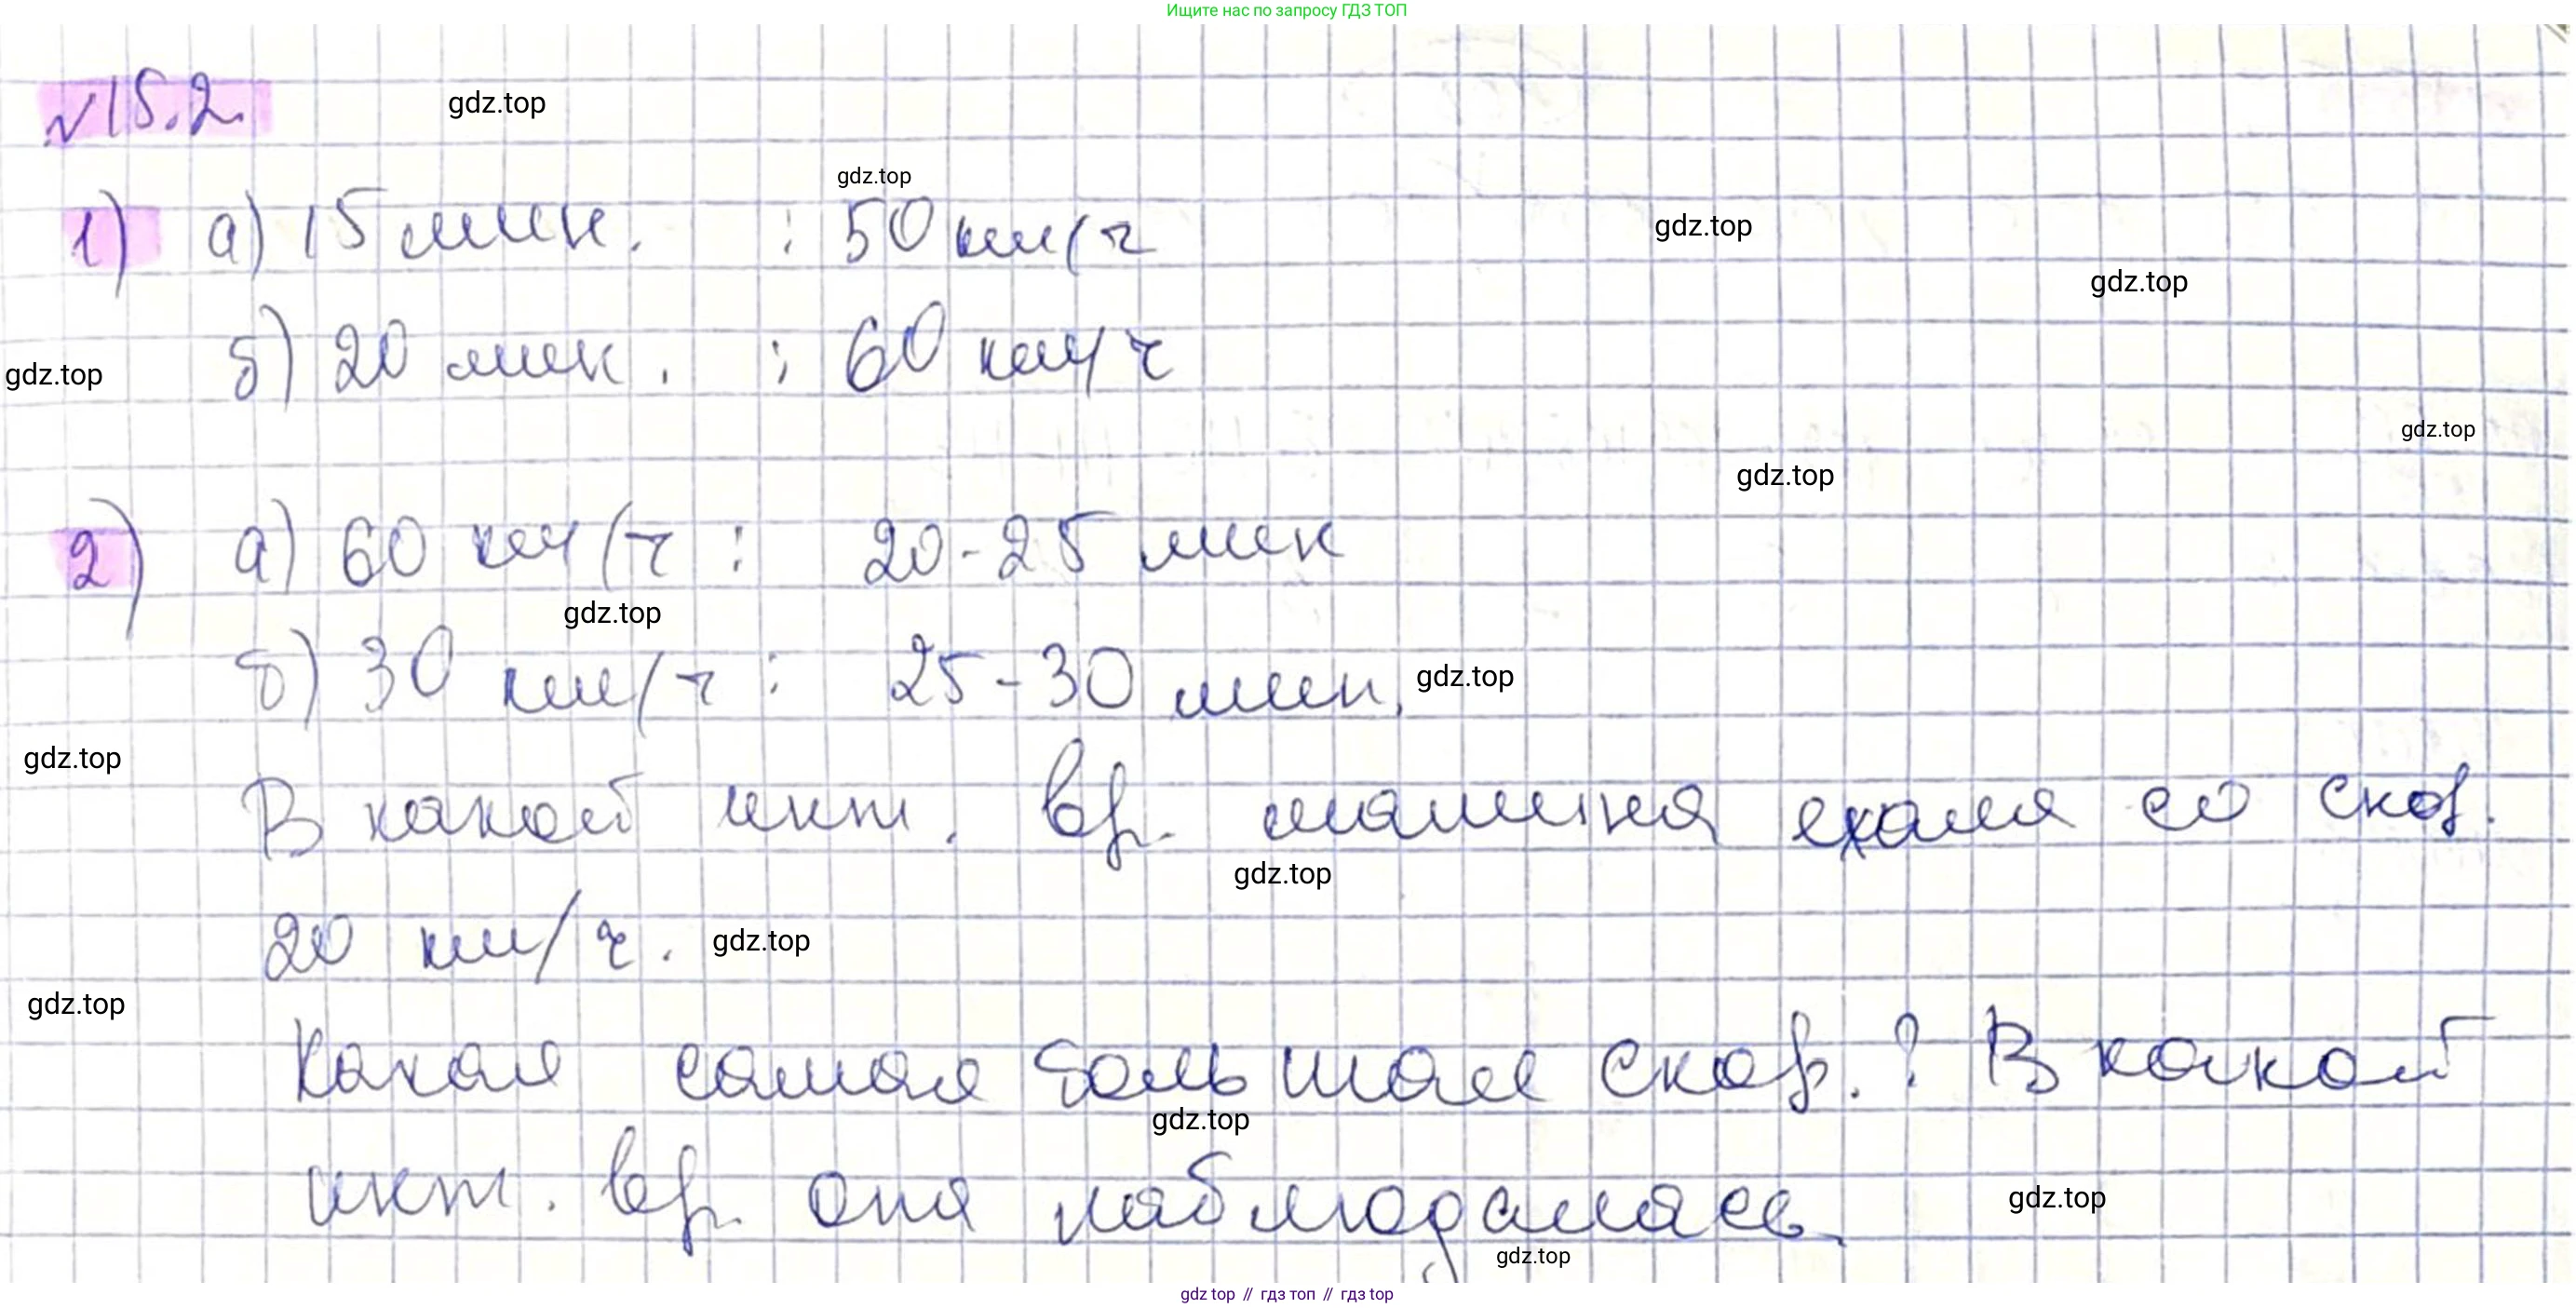 Ищите нас по запросу ГДЗ ТОП
№15.2
gdz.top
gdz.top
1) а) 15 мин. : 50 км/ч
gdz.top
gdz.top
б) 20 мин. : 60 км/ч
gdz.top
gdz.top
gdz.top
2) а) 60 км/ч : 20-25 мин
gdz.top
б) 30 км/ч : 25-30 мин.
gdz.top
gdz.top
В какой инт. вр. машина ехала со скор.
gdz.top
20 км/ч.
gdz.top
gdz.top
Какая самая большая скор.? В какой
gdz.top
инт. вр. она наблюдалась
gdz.top
gdz.top
gdz top // гдз топ // гдз top